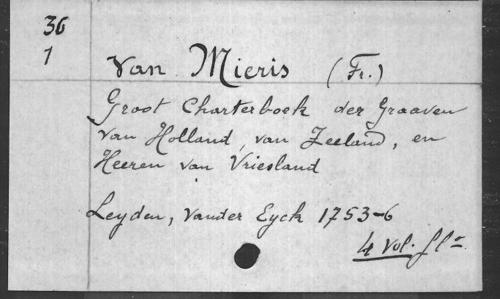 36
1
Van Mieris (Fr.)
Groot Charterboek der Graaven
van Holland, van Zeeland, en
Heeren van Vriesland
Leyden, Vander Eyck 1753-6
4 Vol. flo